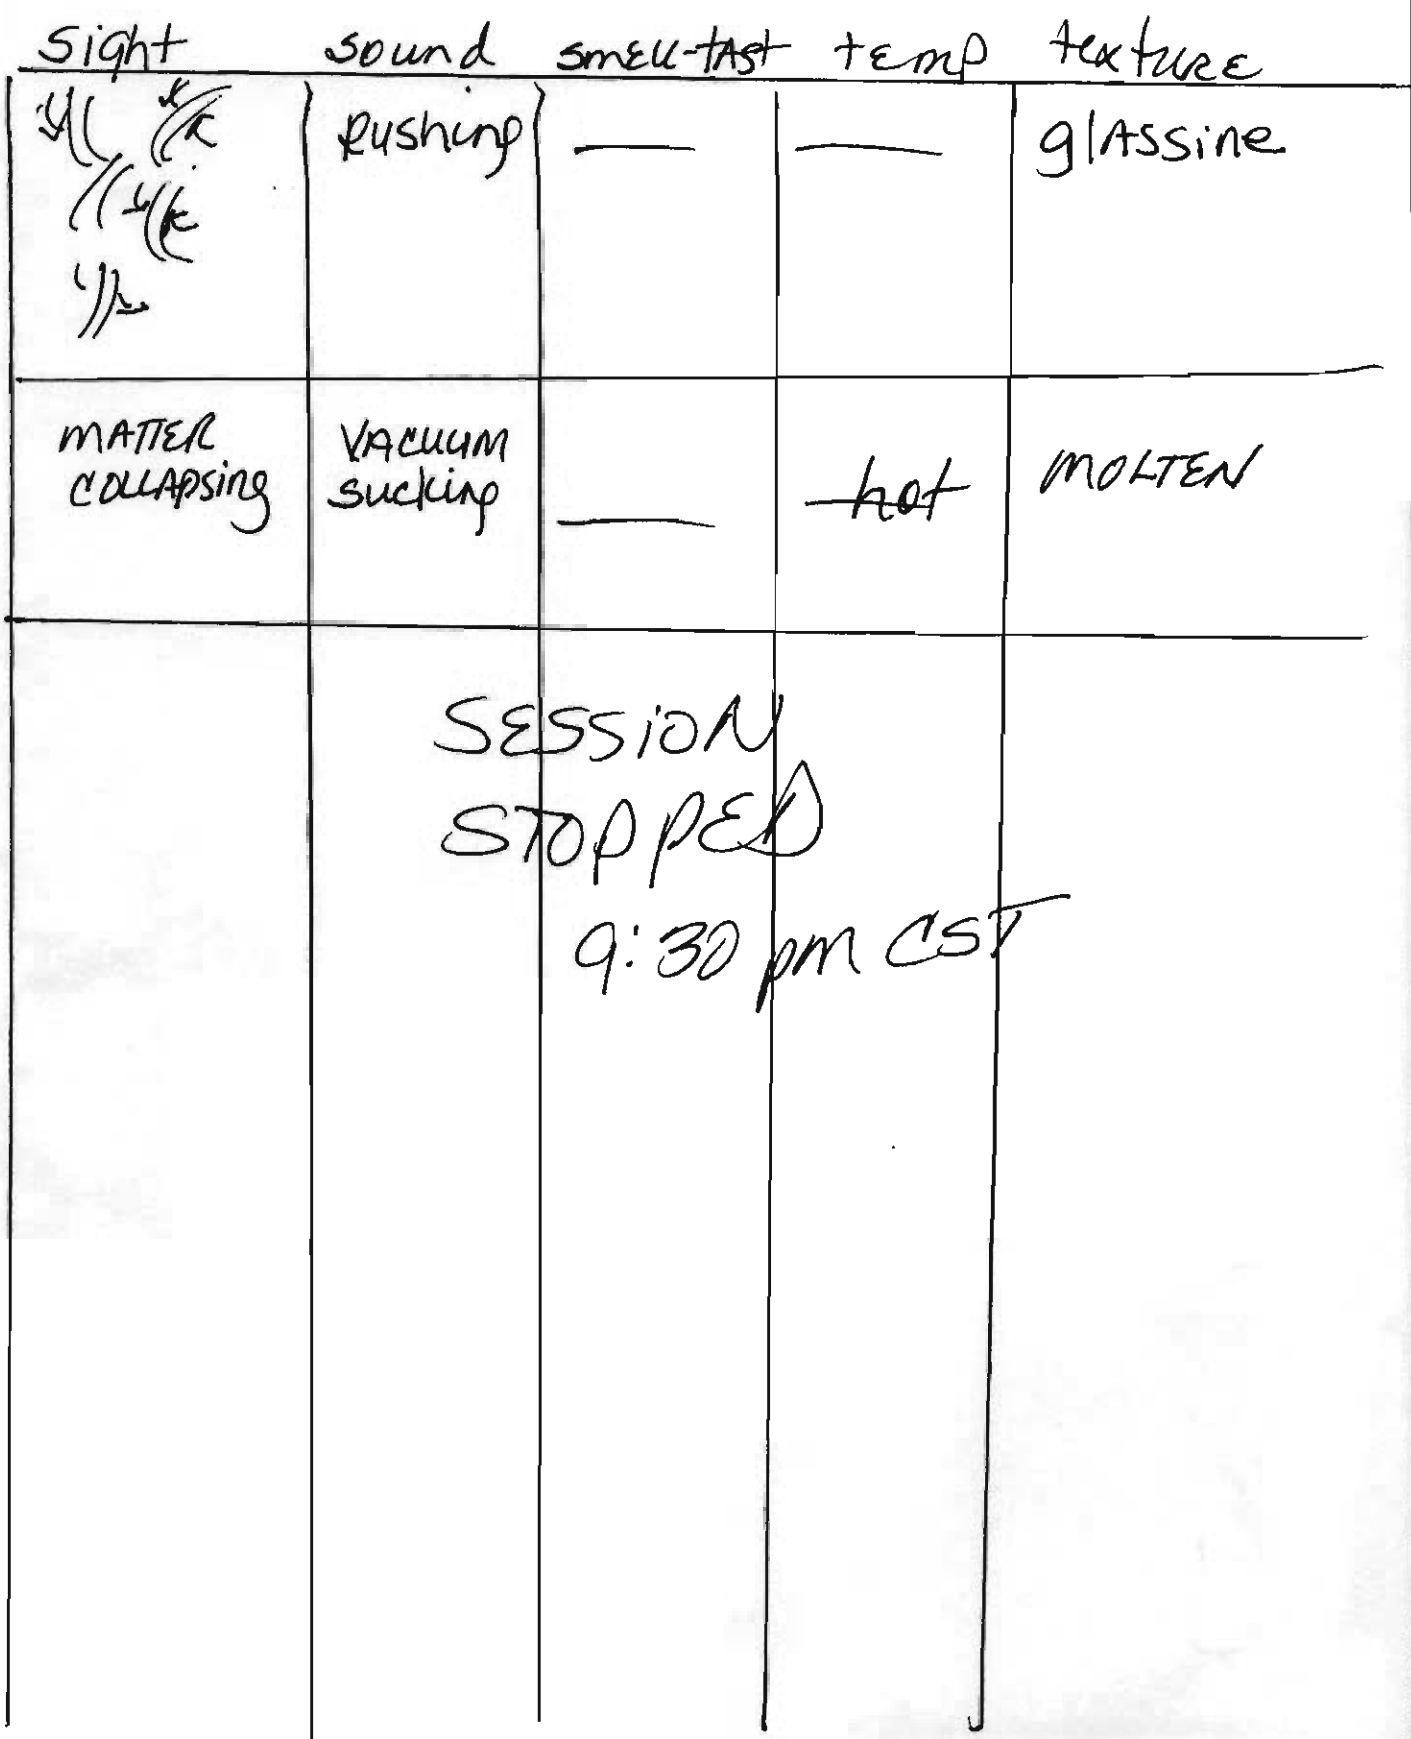 sight sound smell-tast temp texture
Rushing — — glAssine
MATTER COLLAPSING VACUUM sucking — hot MOLTEN
SESSION
STOPPED
9:30 pm CST